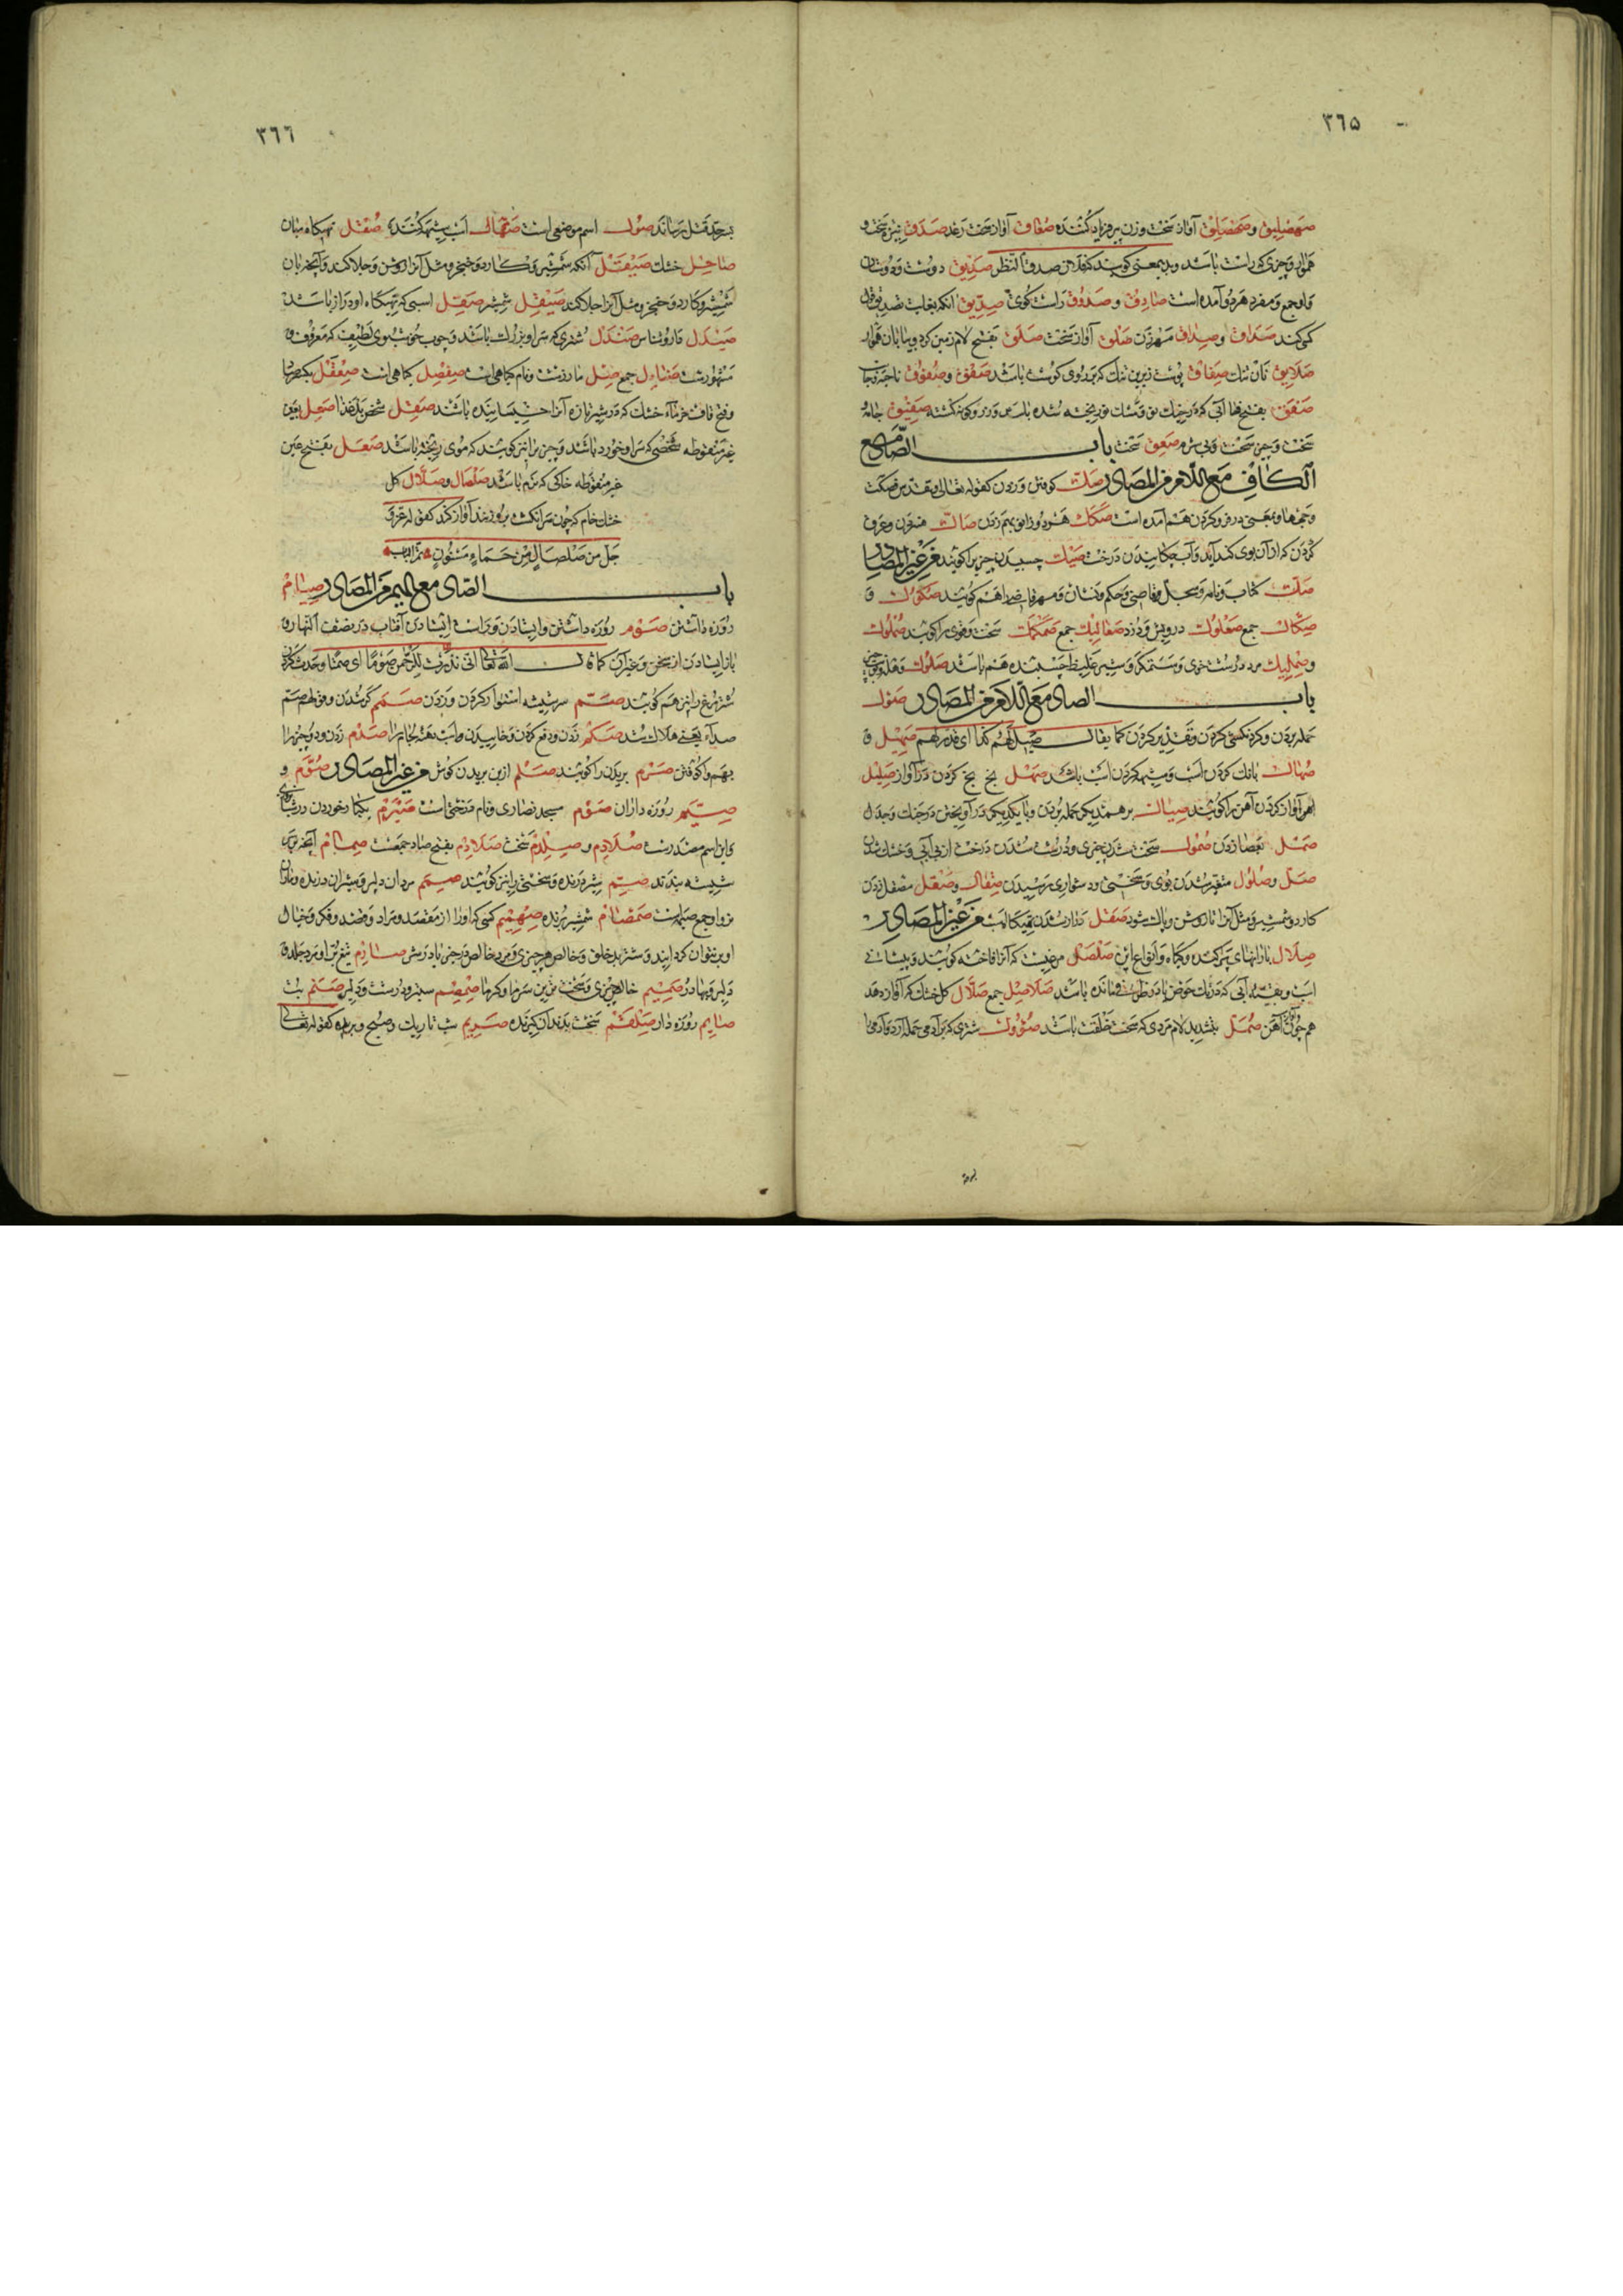 ٣٦٥
صهصلیق و صهصلق آواز سخت و زن پیر فریاد کننده صعاق آواز سخت رعد صدق نیزه سخت و
هموار و چیزی که راست باشد صدیق دوست و دوستان
و او جمع و مفرد هر دو آمده است صادق و صدوق راست گوی صدیق آنکه بغایت تصدیق قول
کسی کند صداق و صداق مهر زن صلق آواز سخت صلق بفتح لام زمین گرد و بیابان هموار
صلایق نان تنک صفاق پوست زیرین تنک که بر روی گوشت باشد صفق و صفوق ناحیه و جانب
صفق بفتح فا آبی که در خیک نو صفیق جامهٔ
سخت و چیز سخت و بی شرم صعق سخت باب الصاد مع
الکاف مع اللام من المصادر صک کوفتن و زدن کقوله تعالی
کردن که از آن بوی کند آید و آب چکانیدن درخت صیک چسبیدن چیزی را گویند من غیر المصادر
صک کتاب و نامه صکوک و
صکاک جمع صعلوک درویش و دزد صعالیک جمع صمکمک سخت و قوی را گویند صملوک
و صملیک مرد درشت خوی و ستمگر و شیر غلیظ چسبنده هم باشد صلوک
باب الصاد مع اللام من المصادر صول
حمله بردن و گردنکشی کردن و تقدیر کردن کما یقال صیل لهم کذا ای قدر لهم صهیل و
صهال بانک کردن اسب و شیهه کردن اسب باشد صهل بخ بخ کردن در آواز صلیل
آهن آواز کردن آهن را گویند صیال بر همدیگر حمله بردن و با یکدیگر در آویختن در جنک و جدل
صمل بعصا زدن صمول سخت شدن چیزی و درشت شدن درخت از بی آبی و خشک شدن
صل و صلول متغیر شدن بوی صقال و صقل مصقل زدن
کارد و شمشیر و مثل آنرا تا روشن و پاک شود صقل من غیر المصادر
صلال بارانهای پراکنده و گیاه و انواع این صلصل مرغیست که آنرا فاخته گویند و پیشانی
اسب و بقیه آبی که در تک حوض یا در ظرف مانده باشد صلاصل جمع صلال گل خشک که آواز دهد
همچون آهن صمل بتشدید لام مردی که سخت خلقت باشد صؤول شتری که بر آدمی حمله آرد و آدمی را
٣٦٦
بحد قتل رساند صول اسم موضعی است صهال اسب شیهه کننده صقل تهیگاه میان
صاحل خشک صیقل آنکه شمشیر و کارد و خنجر و مثل آنرا روشن و جلا کند و آنچه بان
شمشیر و کارد و خنجر و مثل آنرا جلا کند صیقل شمشیر صقل اسبی که تهیگاه او دراز باشد
صیدل داروشناس صندل شتری که سر او بزرگ باشد و چوب خوشبوی لطیف که معروف و
مشهورست جمع صل مار زشت و نام گیاهی است صفصل گیاهی است صعقل بکسر صاد
و فتح قاف خرماء خشک که در شیر تازه آنرا خیسانیده باشند صقل شخص بد غذا صعل بعین
غیر منقوطه شخصی که سر او خورد باشد و چیزی را نیز گویند که موی ریخته باشد صعل بفتح عین
غیر منقوطه خاکی که نرم باشد صلصال و صلال گل
خشک خام که چون سر انگشت برو زنند آواز کند کقوله عز و
جل من صلصال من حماء مسنون
باب الصاد مع المیم من المصادر صیام
روزه داشتن صوم روزه داشتن و ایستادن و راست ایستادن آفتاب در نصف النهار و
باز ایستادن از سخن و غیر آن کما قال الله تعالی انی نذرت للرحمن صوما ای صمتا
شتر مرغ را نیز هم گویند صم سر شیشه استوار کردن و زدن صمم کر شدن
صکم زدن و دفع کردن و خاییدن اسب دهنه لجام را صدم زدن دو چیز را
بهم وا کوفتن صرم بریدن را گویند صلم از بن بریدن گوش من غیر المصادر صوم و
صیم روزه داران صوم مسجد نصاری و نام درختی است صیرم یکبار خوردن در شبانروز
و این اسم مصدرست صلادم و صلدم سخت صلادم بفتح صاد جمعست صمام آنچه سر
شیشه بندند صمم شیر درنده و سختی را نیز گویند صمم مردان دلیر و شیران درنده و ماران
نر و او جمع صمه است صمصام شمشیر برنده صهمیم کسی که او را از مقصد و مراد و قصد و فکر و خیال
او بر نتوان گردانید و شتر بد خلق و خالص هر چیزی صارم تیغ بران و مرد جلد و
دلیر و بهادر صمیم خالص چیزی و سخت ترین سرما و گرما صمصم ستبر و درشت و دلیر صنم بت
صایم روزه دار صلقم سخت بدندان گیرنده صریم شب تاریک و صبح و بریده کقوله تعالی